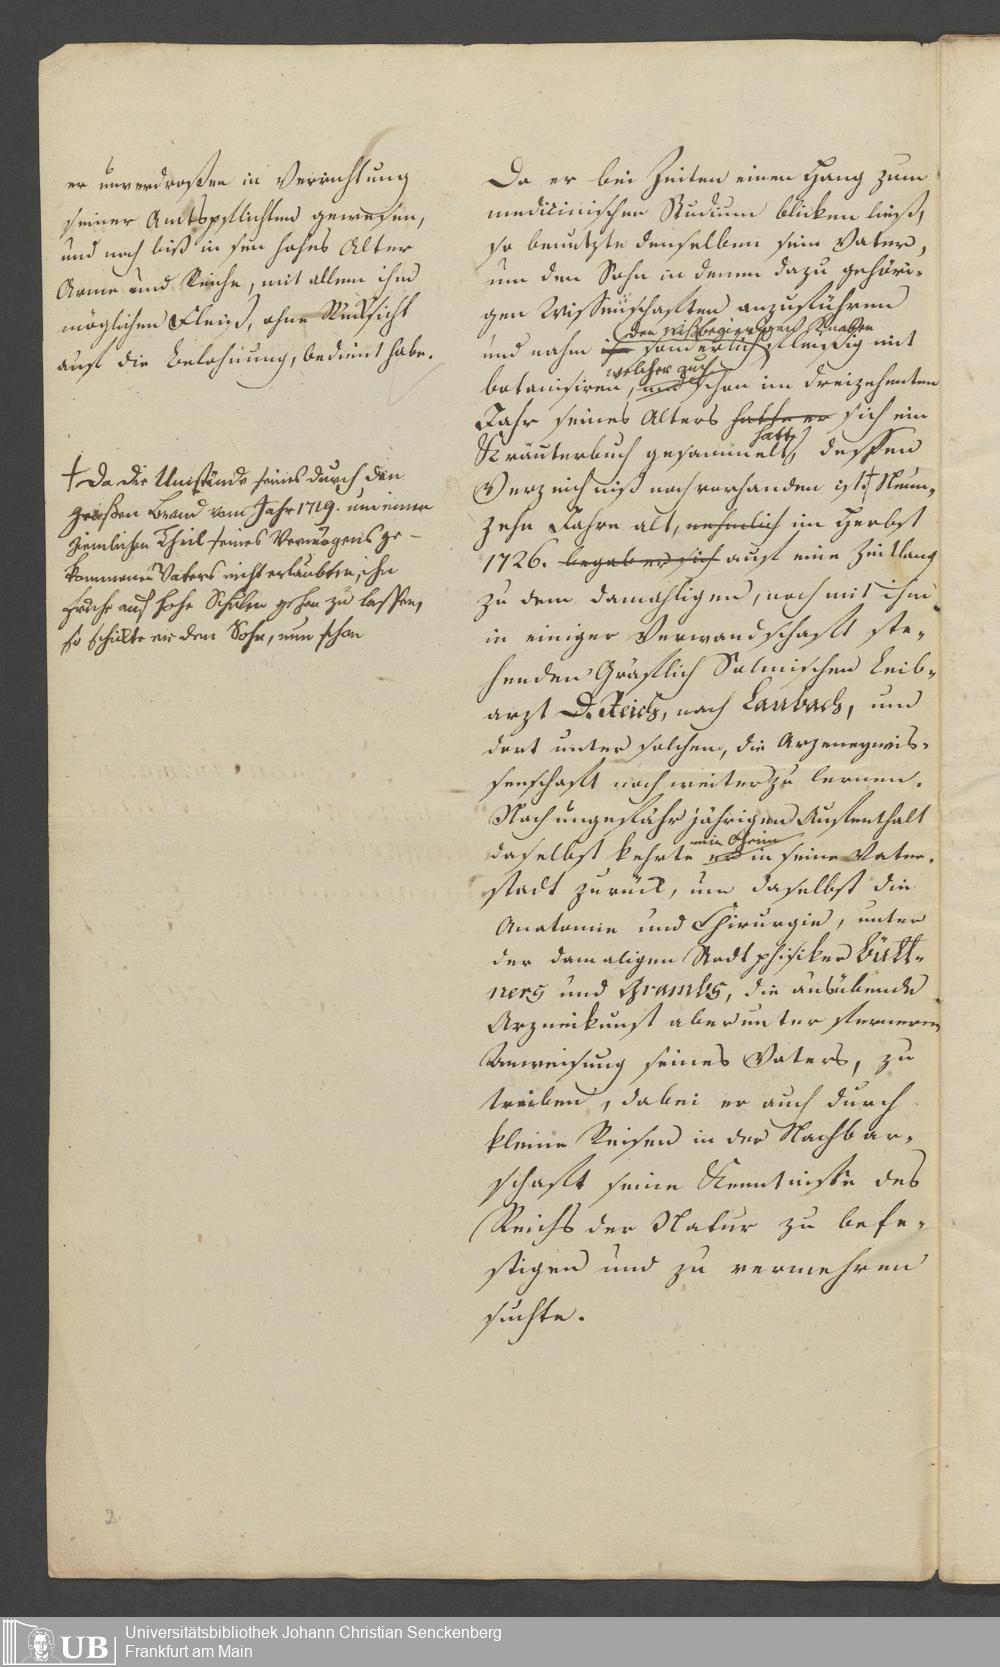 er unverdroßen in Verrichtung
seiner Amtspflichten gewesen,
und noch biß in sein hohes Alter
Arme und Reiche, mit allem ihm
möglichen Fleiß, ohne Rücksicht
auf die Belohnung, bedient habe.
† Da die Umstände seines durch den
großen Brand vom Jahr 1719. um einen
ziemlichen Theil seines Vermögens ge-
kommenen Vaters nicht erlaubten, ihn
auf hohe Schulen gehen zu lassen,
so schickte er den Sohn, nun schon
Da er bei Zeiten einen Hang zum
medicinischen Studium blicken ließ,
so benutzte denselben sein Vater,
um den Sohn in denen dazu gehöri-
gen Wissenschaften anzuführen
den wißbegierigen Knaben
und nahm ihn sonderlich fleißig mit
welcher auch
botanisiren, und schon im dreizehenten
Jahr seines Alters hatte er sich ein
hatte
Kräuterbuch gesammelt, dessen
Verzeichniß noch vorhanden ist. † Neun-
zehn Jahre alt, nehmlich im Herbst
1726. begab er sich auf eine Zeitlang
zu dem damahligen, noch mit ihm
in einiger Verwandschaft ste-
henden Gräflich Solmischen Leib-
arzt D. Reich, nach Laubach, um
dort unter solchem, die Arzeneywis-
senschaft noch weiter zu lernen.
Nach ungefähr jährigem Aufenthalt
mein Oheim
daselbst kehrte er in seine Vater-
stadt zurück, um daselbst die
Anatomie und Chirurgie, unter
der damaligen Stadtphisiker Bütt-
ners und Grambs, die ausübende
Arzneikunst aber unter fernerer
Anweisung seines Vaters, zu
treiben, dabei er auch durch
kleine Reisen in der Nachbar-
schaft seine Kenntnisse des
Reichs der Natur zu befe-
stigen und zu vermehren
suchte.
2
UB
Universitätsbibliothek Johann Christian Senckenberg
Frankfurt am Main